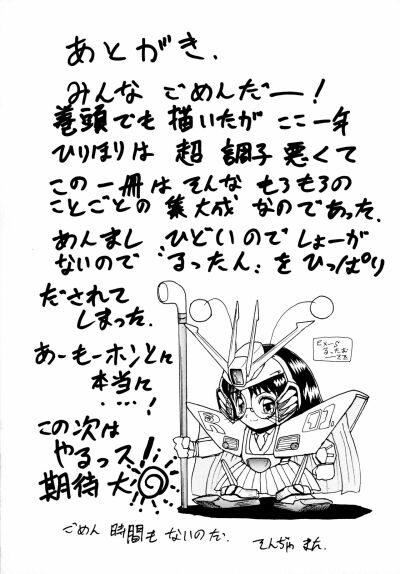 あとがき.
みんな ごめんだー!
巻頭でも描いたが ここ一年
ひりほりは 超 調子 悪くて
この一冊は そんな もろもろの
ことごとの 集大成 なのであった.
めんまし ひどいので しょーが
ないので “るったん„ を ひっぱり
だされて
しまった.
あーもーホンとに
本当に
・・・・!
この次は
やるっス!
期待大
EX-S
るったお
R
11
ごめん 時間も ないのだ.
てんぢゅ まん.